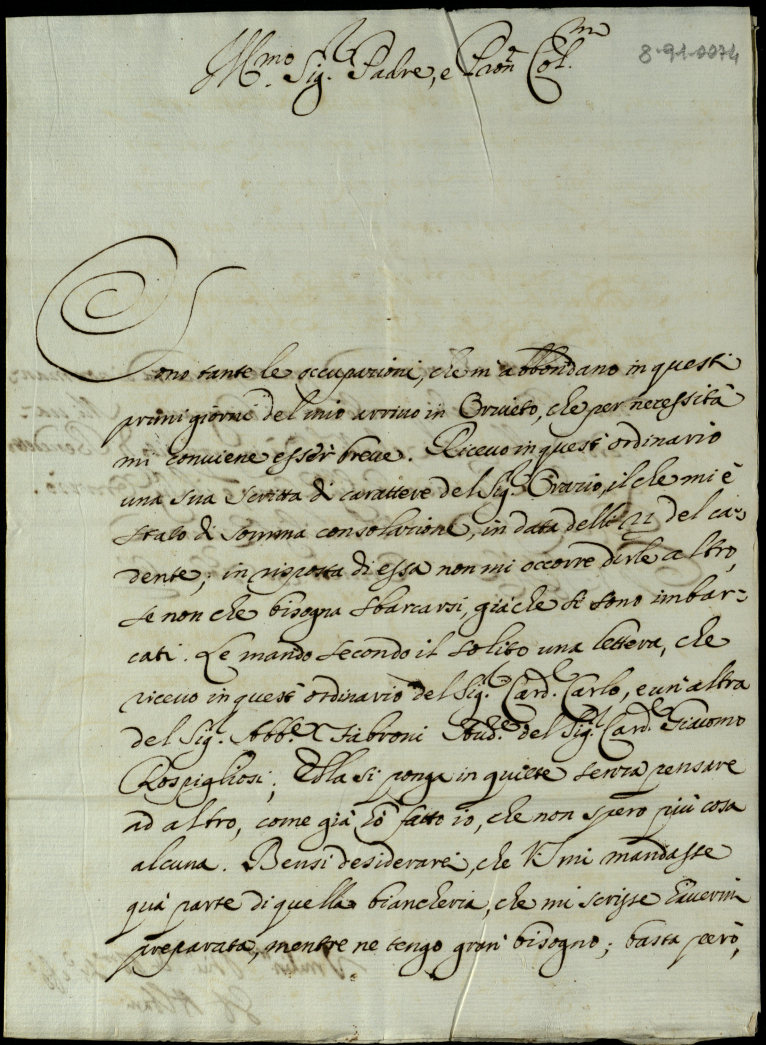 8-91-0074
Ill.mo Sig.r Padre, e Pron Col.mo
Sono tante le occupazioni, che m'abbondano in questi
primi giorni del mio arrivo in Orvieto, che per necessità
mi conviene esser breve. Ricevo in quest'ordinario
una sua scritta di carattere del Sig.r Orazio, il che mi è
stato di somma consolazione, in data delli 21 del ca=
dente; in risposta di essa non mi occorre dirle altro,
se non che bisogna sbarcarsi, giàche si sono imbar=
cati. Le mando secondo il solito una lettera, che
ricevo in quest'ordinario del Sig.r Card.e Carlo, e un'altra
del Sig.r Abb.e Fabroni Aud.e del Sig.r Card.e Giacomo
Rospigliosi; Ella si ponga in quiete senza pensare
ad altro, come già hò fatto io, che non spero più cosa
alcuna. Bensi desiderarei, che V.S. mi mandasse
quà parte di quella biancheria, che mi scrisse haverm
preparata, mentre ne tengo gran bisogno; basta però,